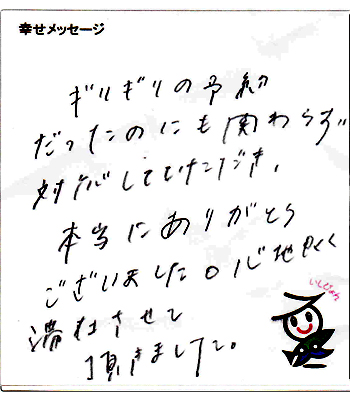 幸せメッセージ
ギリギリの予約
だったのにも関わらず
対応していただき、
本当にありがとう
ございました。心地よく
滞在させて
頂きました。